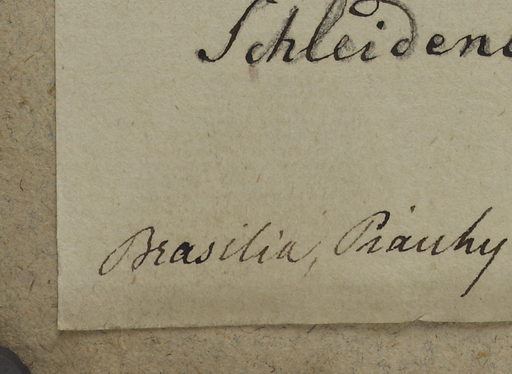 Schleiden
Brasilia, Piauhy